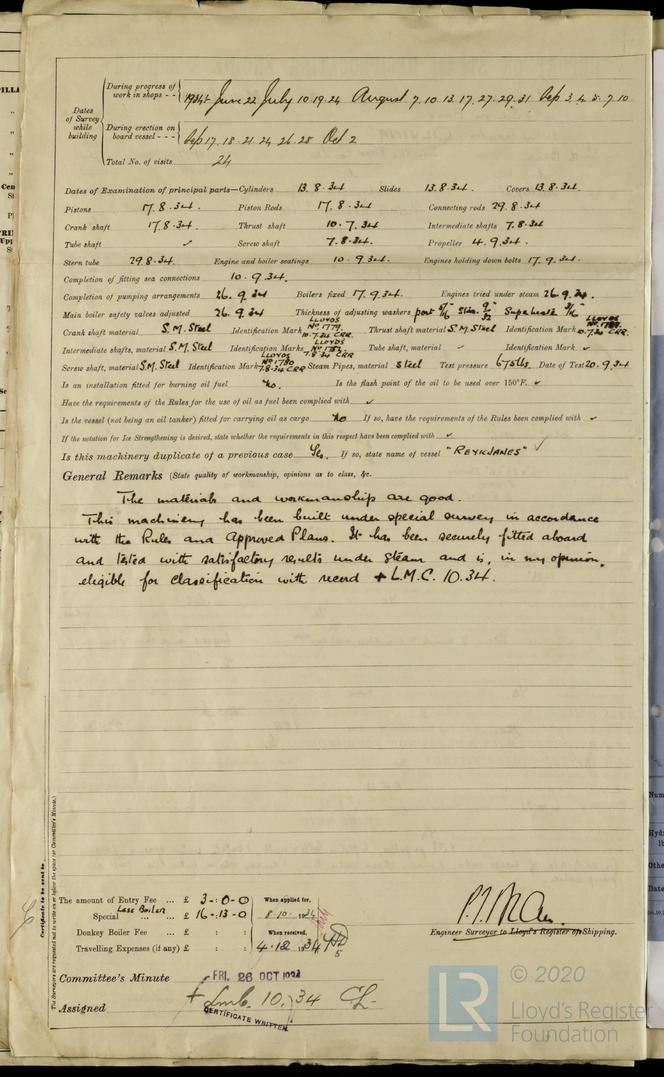 During progress of
work in shops - -
1934 June 22 July 10.19.24 August 7.10.13.17.27.29.31 Sep 3.4.5.7.10
Dates
of Survey
while
building
During erection on
board vessel - - -
Sep 17.18.21.24.26.28 Oct 2
Total No. of visits 24
Dates of Examination of principal parts—Cylinders 13.8.34 Slides 13.8.34. Covers 13.8.34
Pistons 17.8.34. Piston Rods 17.8.34 Connecting rods 29.8.34
Crank shaft 17.8.34. Thrust shaft 10.7.34 Intermediate shafts 7.8.34
Tube shaft ✓ Screw shaft 7.8.34. Propeller 4.9.34.
Stern tube 29.8.34 Engine and boiler seatings 10.9.34. Engines holding down bolts 17.9.34.
Completion of fitting sea connections 10.9.34.
Completion of pumping arrangements 26.9.34 Boilers fixed 17.9.34. Engines tried under steam 26.9.34.
Main boiler safety valves adjusted 26.9.34 Thickness of adjusting washers port 5/16 Star. 9/32 Superheater 3/16
Crank shaft material S.M. Steel Identification Mark LLOYDS No 1779 10.7.34 CRR Thrust shaft material S.M. Steel Identification Mark LLOYDS 10.7.34 CRR.
Intermediate shafts, material S.M. Steel Identification Marks LLOYDS 7.8.34 CRR Tube shaft, material ✓ Identification Mark ✓
Screw shaft, material S.M. Steel Identification Mark LLOYDS No 1780 7.8.34 CRR Steam Pipes, material Steel Test pressure 675 lbs Date of Test 20.9.34
Is an installation fitted for burning oil fuel No. Is the flash point of the oil to be used over 150°F. ✓
Have the requirements of the Rules for the use of oil as fuel been complied with ✓
Is the vessel (not being an oil tanker) fitted for carrying oil as cargo No If so, have the requirements of the Rules been complied with ✓
If the notation for Ice Strengthening is desired, state whether the requirements in this respect have been complied with ✓
Is this machinery duplicate of a previous case Yes. If so, state name of vessel "REYKJANES" ✓
General Remarks (State quality of workmanship, opinions as to class, &c.
The materials and workmanship are good.
This machinery has been built under special survey in accordance
with the Rules and Approved Plans. It has been securely fitted aboard
and tested with satisfactory results under steam and is, in my opinion,
eligible for classification with record + L.M.C. 10.34.
The Surveyors are requested not to write on or below the space for Committee's Minute.)
Certificate to be sent to
The amount of Entry Fee ... £ 3-:0-0
Special Less Boiler ... £ 16-:13-0
Donkey Boiler Fee ... £ : :
Travelling Expenses (if any) £ : :
When applied for,
8.10.1934
When received,
4.12.1934
Engineer Surveyor to Lloyd's Register of Shipping.
Committee's Minute FRI. 26 OCT 1934
Assigned + Lmc. 10.34 CL-
CERTIFICATE WRITTEN.
LR
© 2020
Lloyd's Register
Foundation